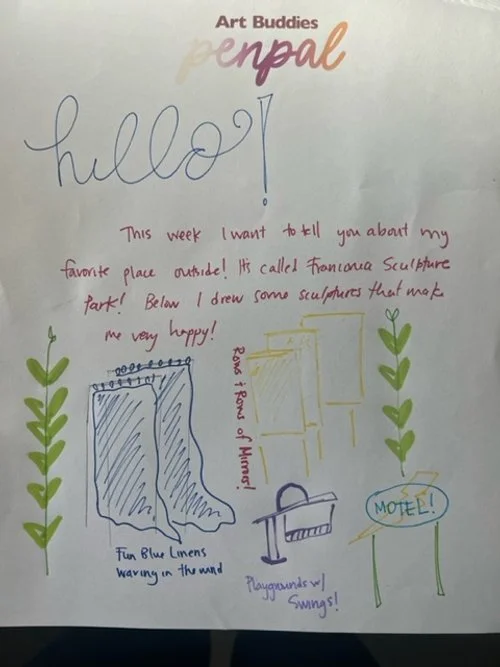 Art Buddies
penpal
hello!
This week I want to tell you about my
favorite place outside! Its called Franconia Sculpture
Park! Below I drew some sculptures that make
me very happy!
Rows + Rows of Mirrors!
MOTEL!
Fun Blue Linens
waving in the wind
Playgrounds w/
Swings!